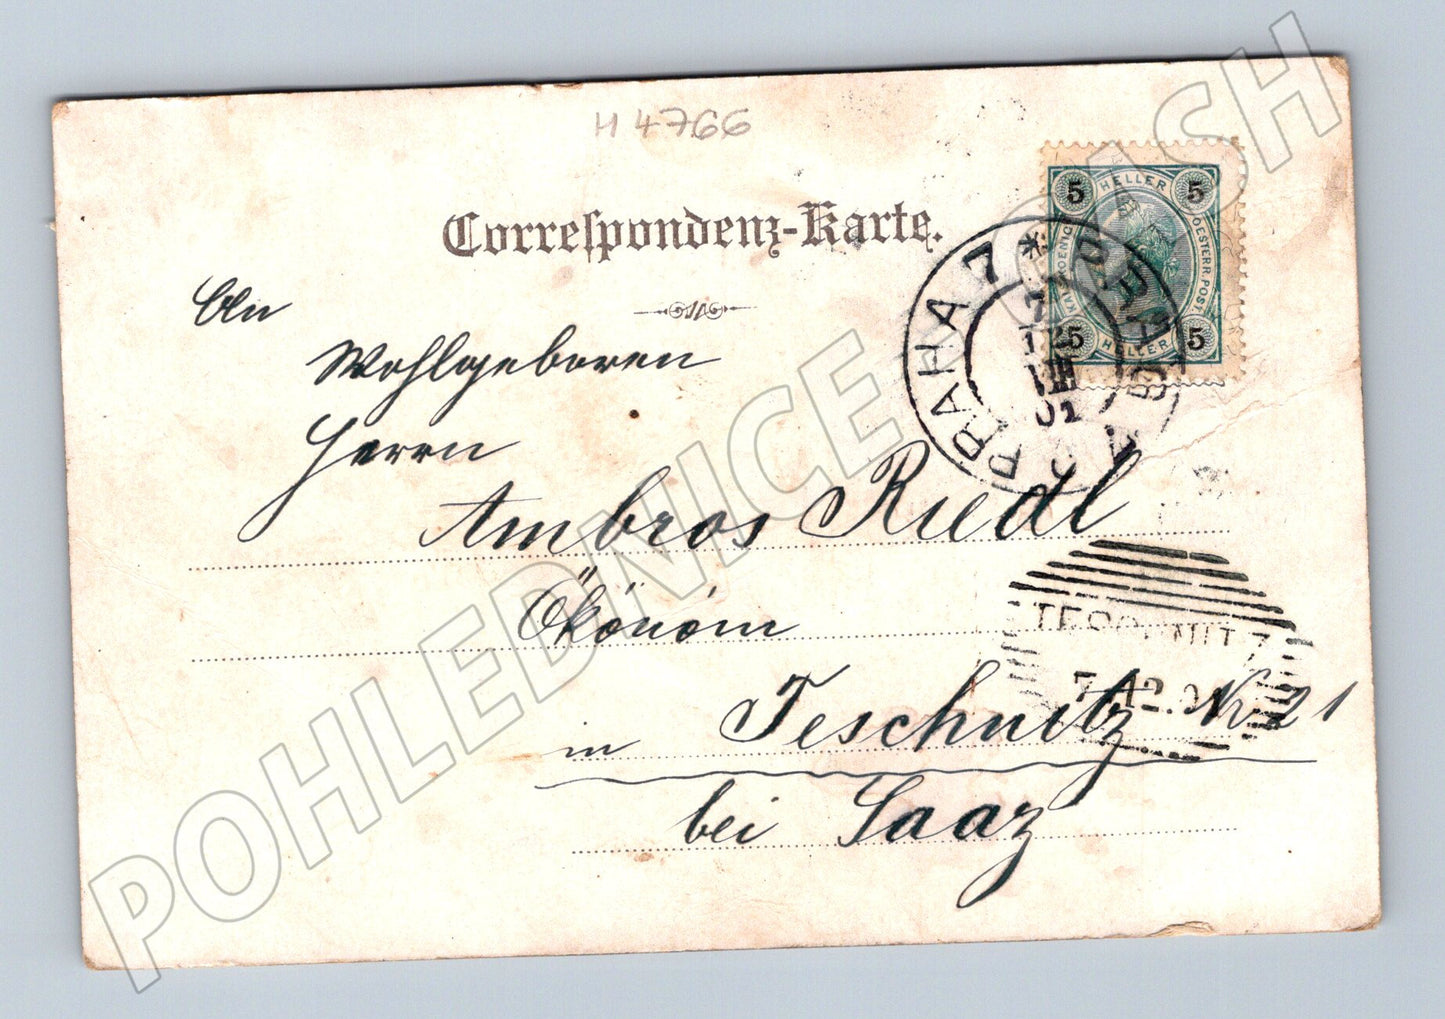 H 4766
Correspondenz-Karte.
5 HELLER 5
KAIS. KOENIGL. OESTERR. POST
5 HELLER 5
PRAHA 7 * PRAG 7
7
12
01
An
Wohlgeboren
Herrn
Ambros Riedl
Ökonom
TESCHNITZ
7.12.01
in Teschnitz Nr 21
bei Saaz
POHLEDNICE - CASH